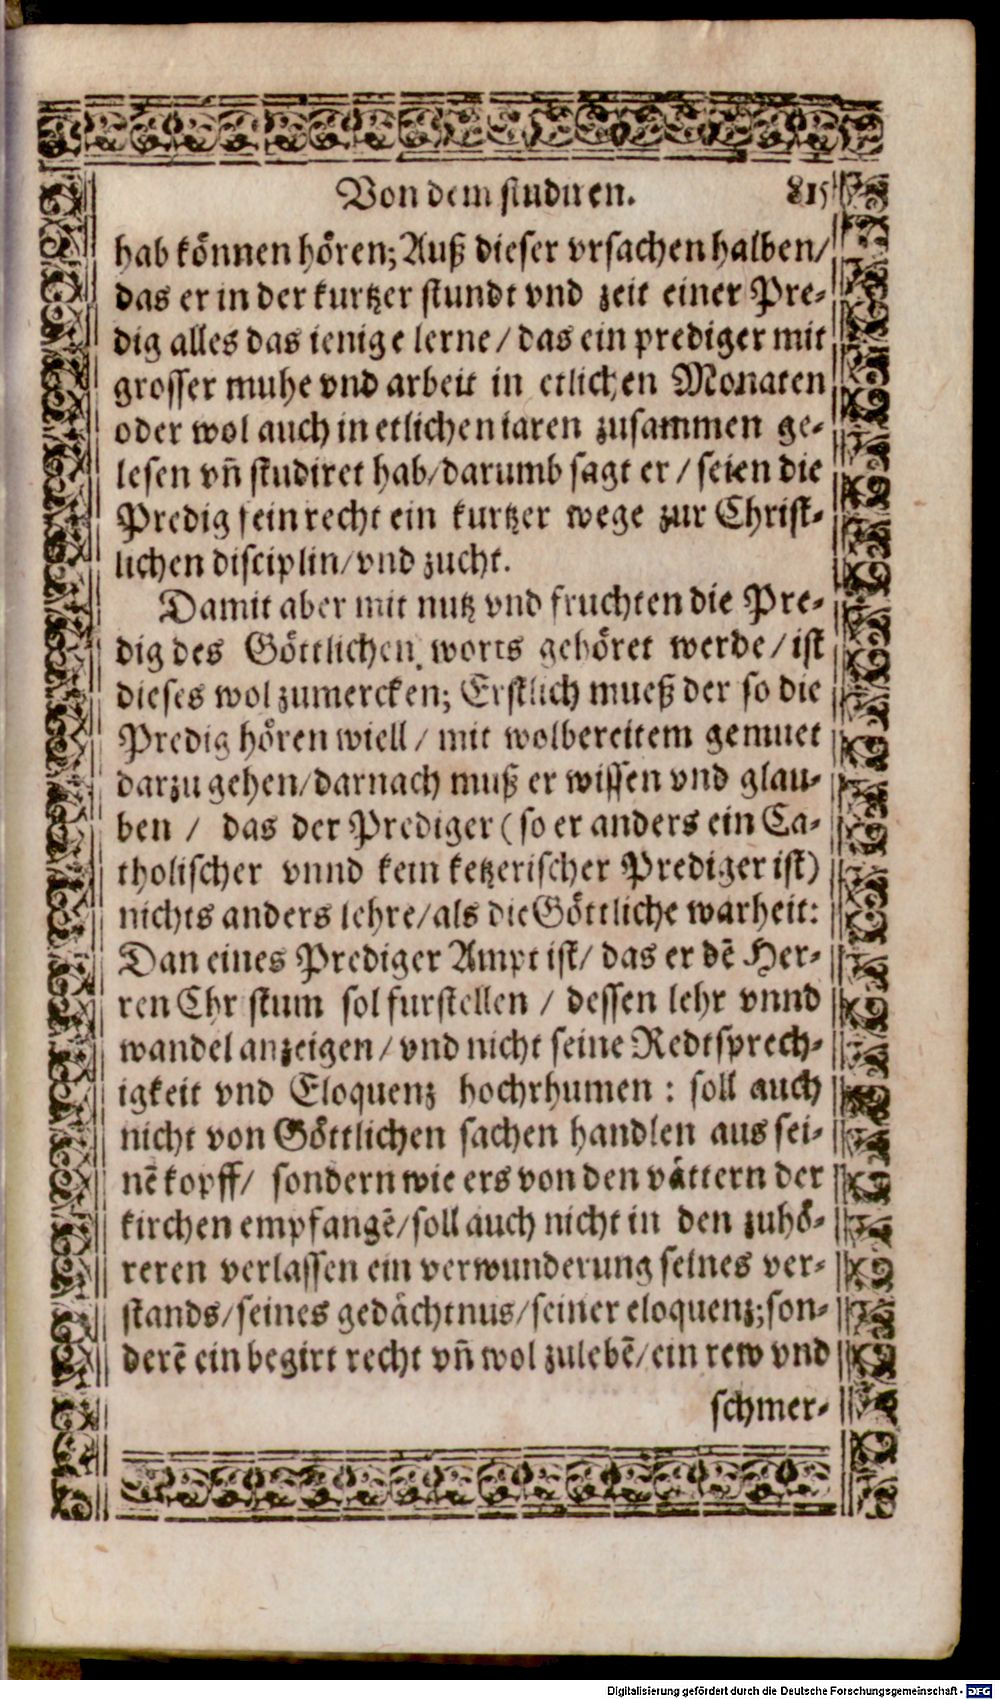 Von dem studiren. 815
hab können hören; Auß dieser vrsachen halben/
das er in der kurtzer stundt vnd zeit einer Pre-
dig alles das ienige lerne / das ein prediger mit
grosser muhe vnd arbeit in etlichen Monaten
oder wol auch in etlichen iaren zusammen ge-
lesen vñ studiret hab/darumb sagt er / seien die
Predig fein recht ein kurtzer wege zur Christ-
lichen disciplin/vnd zucht.
Damit aber mit nutz vnd fruchten die Pre-
dig des Göttlichen worts gehöret werde / ist
dieses wol zumercken; Erstlich mueß der so die
Predig hören wiell / mit wolbereitem gemuet
darzu gehen/darnach muß er wissen vnd glau-
ben / das der Prediger (so er anders ein Ca-
tholischer vnnd kein ketzerischer Prediger ist)
nichts anders lehre/als die Göttliche warheit:
Dan eines Prediger Ampt ist/ das er dē Her-
ren Chr stum sol furstellen / dessen lehr vnnd
wandel anzeigen/vnd nicht seine Redtsprech-
igkeit vnd Eloquenz hochrhumen : soll auch
nicht von Göttlichen sachen handlen aus sei-
nē kopff/ sondern wie ers von den vättern der
kirchen empfangē/soll auch nicht in den zuhö-
reren verlassen ein verwunderung seines ver-
stands/seines gedächtnus/seiner eloquenz;son-
derē ein begirt recht vñ wol zulebē/ein rew vnd
schmer-
Digitalisierung gefördert durch die Deutsche Forschungsgemeinschaft - DFG